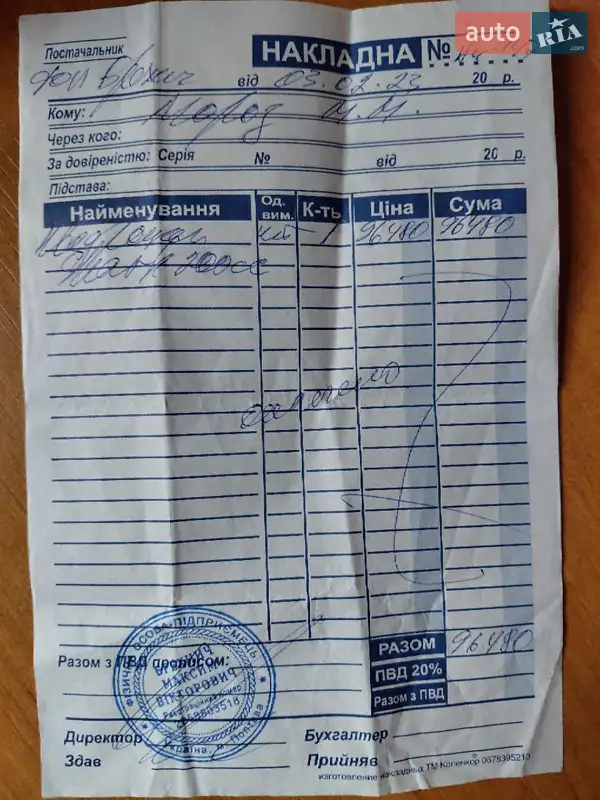 auto RIA .com
Постачальник
НАКЛАДНА №
Фоп від 03.02.23 20 р.
Кому: М.М.
Через кого:
За довіреністю: Серія № від 20 р.
Підстава:
Найменування Од. вим. К-ть Ціна Сума
шт 1 96480 96480
200сс
оплачено
РАЗОМ 96480
Разом з ПВД прописом:
ПВД 20%
Разом з ПВД
ФІЗИЧНА ОСОБА-ПІДПРИЄМЕЦЬ
МАКСИМ
ВІКТОРОВИЧ
Україна, м. Полтава
Директор Бухгалтер
Здав Прийняв
изготовление накладных ТМ Копенкор 0678395210